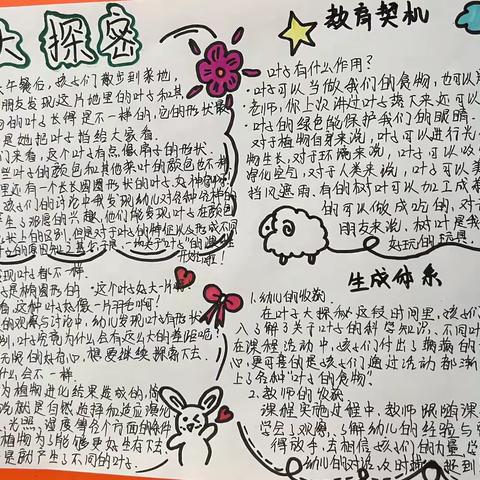 大探密
午餐后,孩子们散步到菜地,
朋友发现这片地里的叶子和其
的叶子长得是不一样的,它的形状最
是她把叶子捡给大家看。
们来看,这个叶子有点像扇子的形状。
些叶子的颜色和其他菜叶的颜色也不一样
里还有一个长长圆圆形状的叶子,
孩子们的讨论中我发现幼儿对各种各样的
产生了浓厚的兴趣,他们能发现叶子在颜色
状上的区别,但是对于叶子的种类以及形成不同
的原因知之甚少于是,一场关于"叶子"的
开始啦!
发现叶都不一样。
是椭圆形的·这个叶子好大一片啊!
看,这种叶子好像一片羽毛啊!
的观察与讨论中,幼儿发现叶子有形状
别,叶子究竟为什么会有这么大的差距呢?
无限的好奇心,想要继续探索下去。
什么会不一样。
为植物进化结果造成的,
说就是自然选择和适应演化
光照、湿度等各个方面的条件
植物为了能够更好生存下去,
是就产生了不同的叶子。
教育契机
·叶子有什么作用?
·叶子可以当做我们的食物,也可以
·老师,你上次讲过叶子落下来还可以
·叶子的绿色能保护我们的眼睛。
对于植物自身来说,叶子可以进行光合
物生长,对于环境来说,叶子可以吸收
净化空气,对于人类来说,叶子可以
挡风遮雨,有的树叶可以加工成
的可以做成吃的,对
朋友来说,树叶是我
好玩的玩具。
生成体系
1.幼儿的收获
在叶子大探秘这段时间里,孩子们
入了解了关于叶子的科学知识,不同叶
在课程活动中,孩子们付出了满满的
心,更可喜的是孩子们通过活动都渐
上了各种"叶子的食物!
2.教师的收获
课程实施过程中,教师跟随课
学会了观察,了解幼儿的经验与
得放手,去相信孩子们的力量,
幼儿的对话及时捕捉到